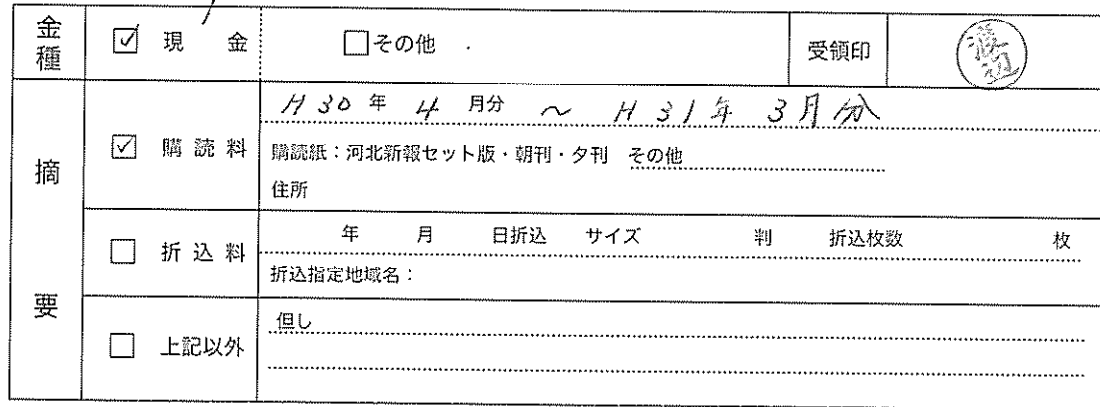 金種 ☑ 現金 □その他 受領印 渡辺
摘要
H30年 4月分 ～ H31年3月分
☑ 購読料 購読紙：河北新報セット版・朝刊・夕刊 その他
住所
□ 折込料 年 月 日折込 サイズ 判 折込枚数 枚
折込指定地域名：
□ 上記以外 但し